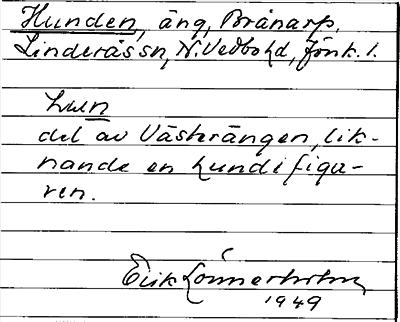 Hunden, äng, Brånarp,
Linderås sn, N. Vedbo hd, Jönk. l.
hun
del av Västerängen, lik-
nande en hund i figu-
ren.
Erik Lönnerholm
1949